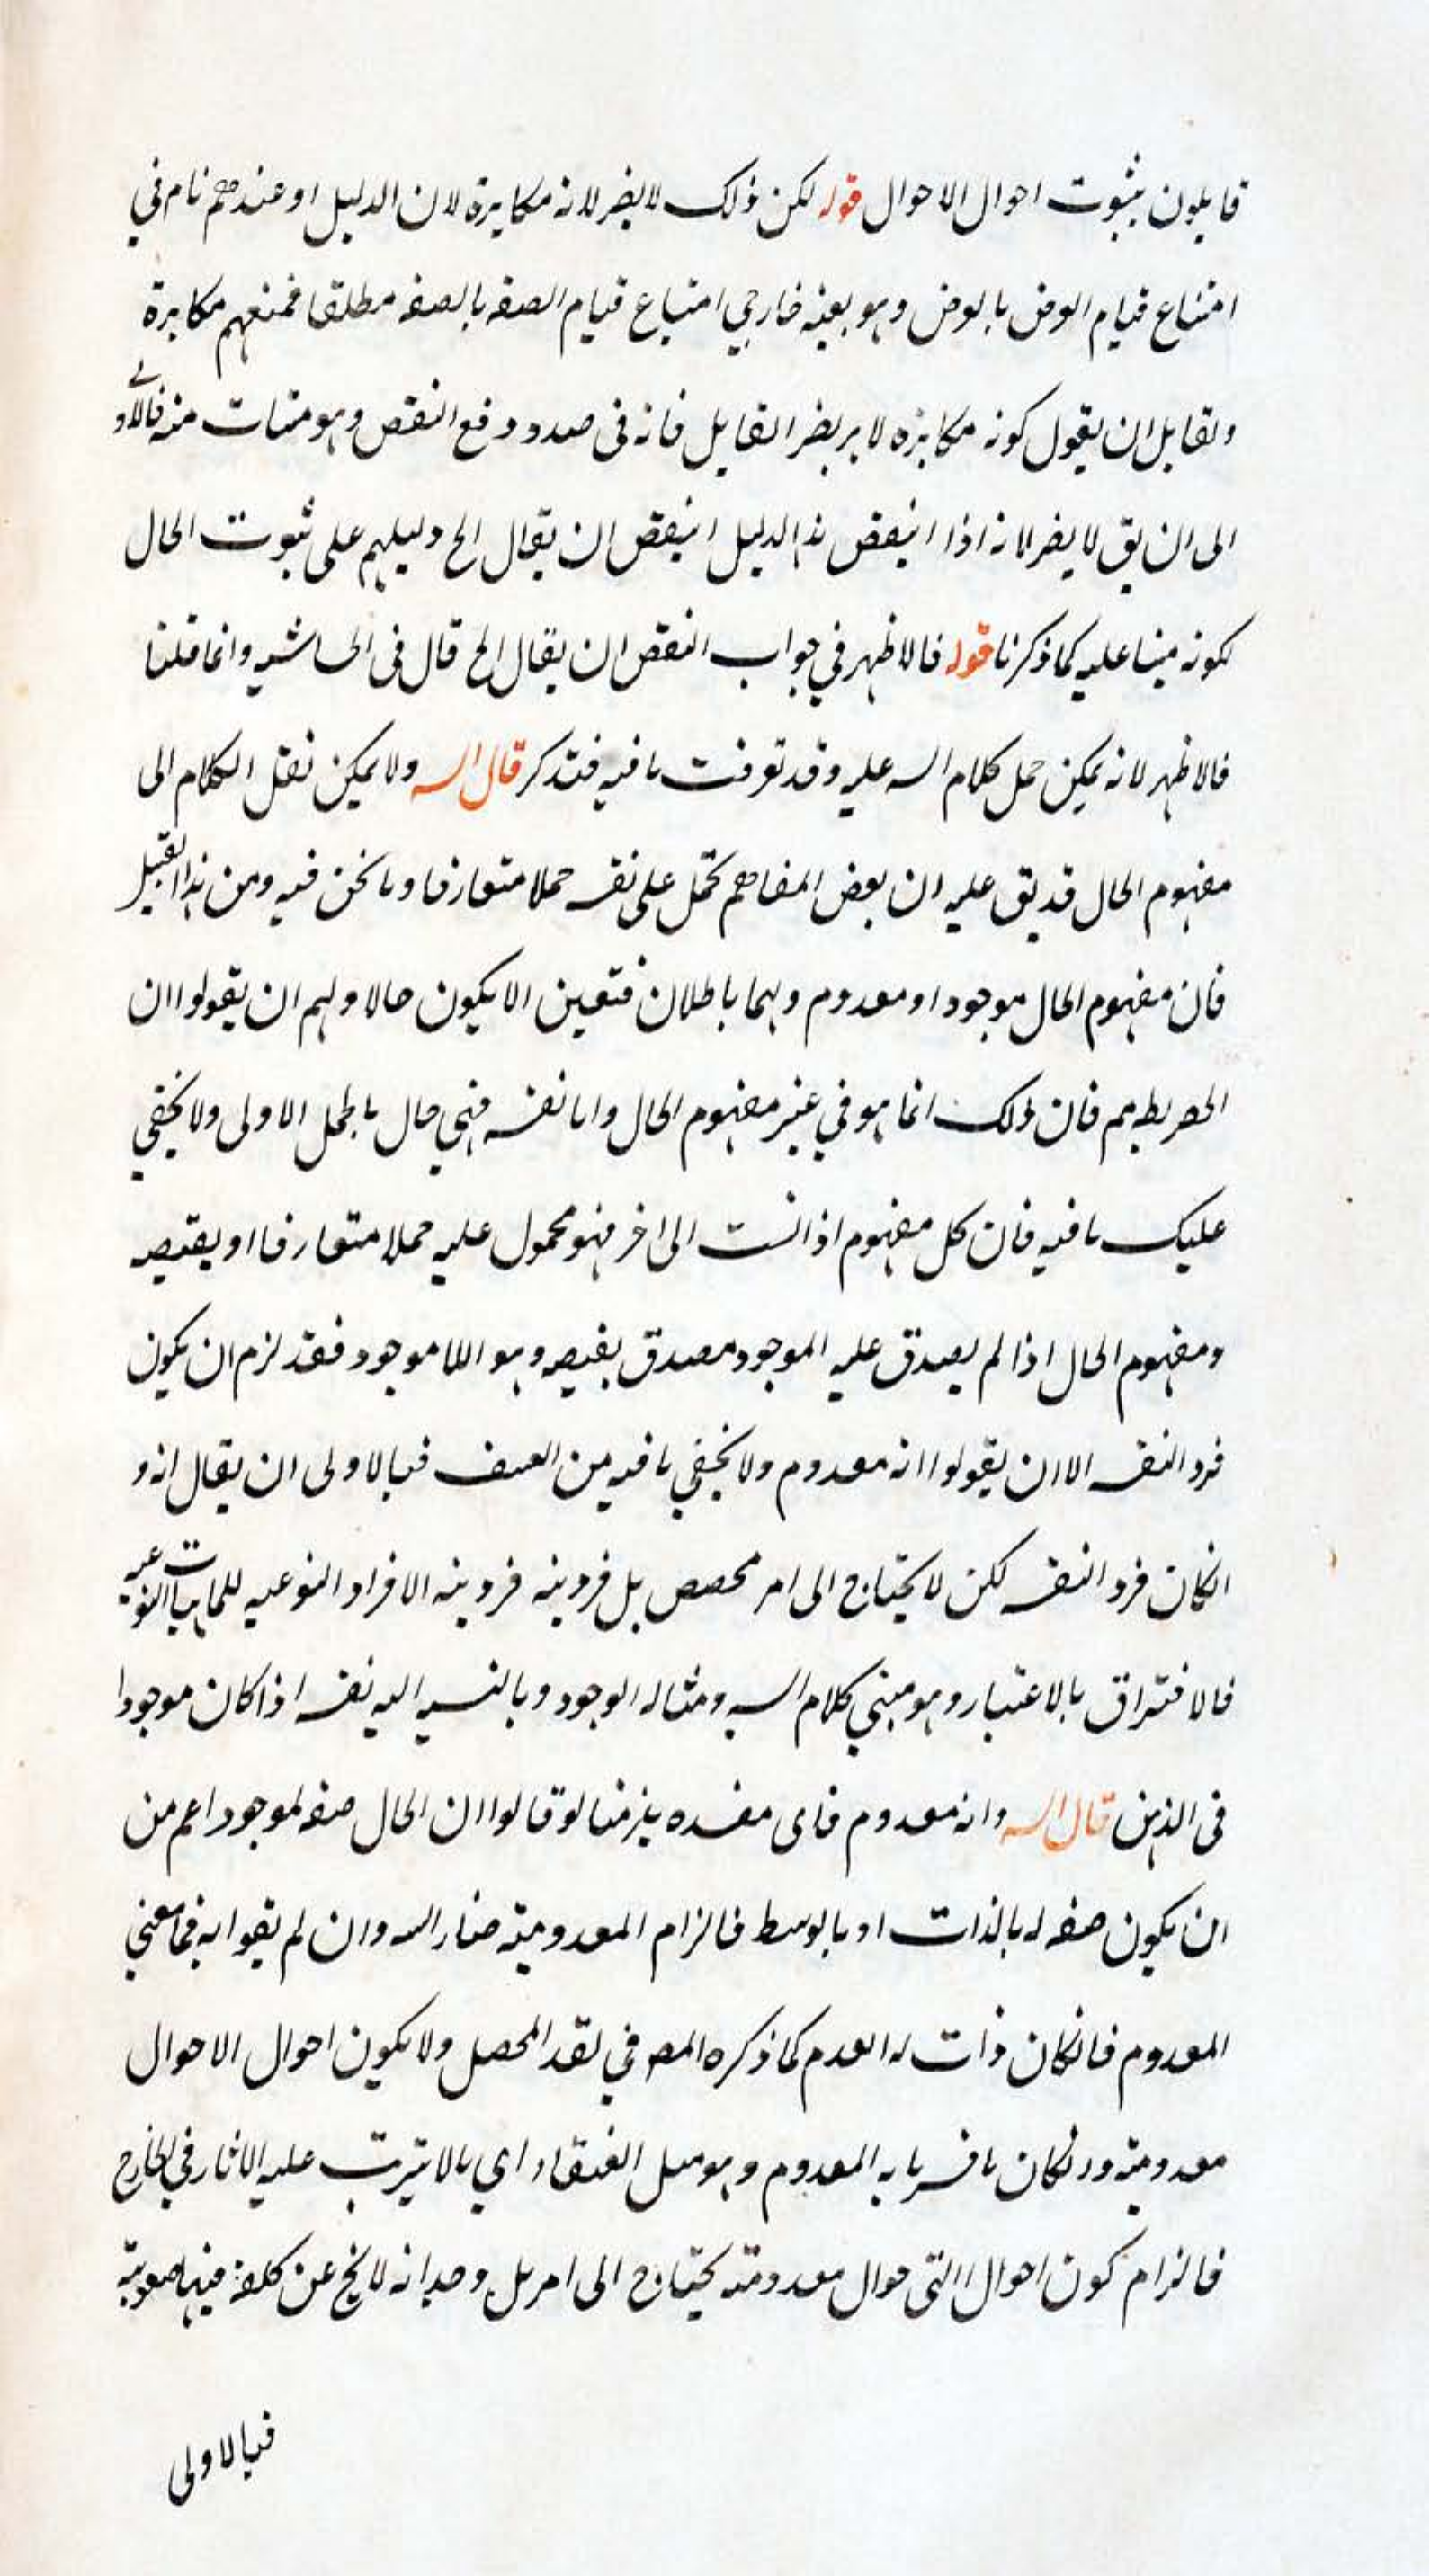 قايلون بثبوت احوال الاحوال قوله لكن ذلك لا يضر لانه مكابرة لان الدليل او عندهم تام في
امتناع قيام العرض بالعرض وهو بعينه جار في امتناع قيام الصفه بالصفه مطلقا فمنعهم مكابرة
ولقايل ان يقول كونه مكابره لا يضر القايل فانه في صدد دفع النقض وهو متات منه فالاولى
الى ان يق لا يضر لانه اذا انتقض هذا الدليل انتقض ان يقال الخ دليلهم على ثبوت الحال
لكونه مبنيا عليه كما ذكرنا قوله فالاظهر في جواب النقض ان يقال الخ قال في الحاشيه وانما قلنا
فالاظهر لانه يمكن حمل كلام الش عليه وقد تعرفت ما فيه فتذكر قال الش ولا يمكن نقل الكلام الى
مفهوم الحال قد يق عليه ان بعض المفاهم تحمل على نفسه حملا متعارفا وما نحن فيه من هذا القبيل
فان مفهوم الحال موجود او معدوم وهما باطلان فتعين الا يكون حالا ولهم ان يقولوا ان
الحصر بط مم فان ذلك انما هو في غير مفهوم الحال واما نفسه فهي حال بالحمل الاولى ولا يخفى
عليك ما فيه فان كل مفهوم اذا نسب الى اخر فهو محمول عليه حملا متعارفا او نقيضه
ومفهوم الحال اذا لم يصدق عليه الموجود صدق نقيضه وهو اللاموجود فقد لزم ان يكون
فرد النفسه الا ان يقولوا انه معدوم ولا يخفى ما فيه من العسف فبالاولى ان يقال انه و
انكان فرد النفسه لكن لا يحتاج الى امر مخصص بل فرديته فرديته الافراد النوعيه للماهيات النوعيه
فالافتراق بالاعتبار وهو مبنى كلام الش ومثاله الوجود وبالنسبه اليه نفسه اذا كان موجودا
في الذهن قال الش وانه معدوم فاى مفسده يلزمنا لو قالوا ان الحال صفه لموجود اعم من
ان يكون صفه له بالذات او بالوسط فالزام المعدوميه ضار الش وان لم يقوا به فما معنى
المعدوم فانكان ذات له العدم كما ذكره المصـ في نقد المحصل ولا يكون احوال الاحوال
معدوميه وانكان ما فسرنا به المعدوم وهو مثل العنقاء اي مالا يترتب عليه الاثار في الخارج
فالزام كون احوال التى حوال معدومة يحتاج الى امر بل وجدانه لا يخ عن كلفه فيها صعوبة
فبالاولى